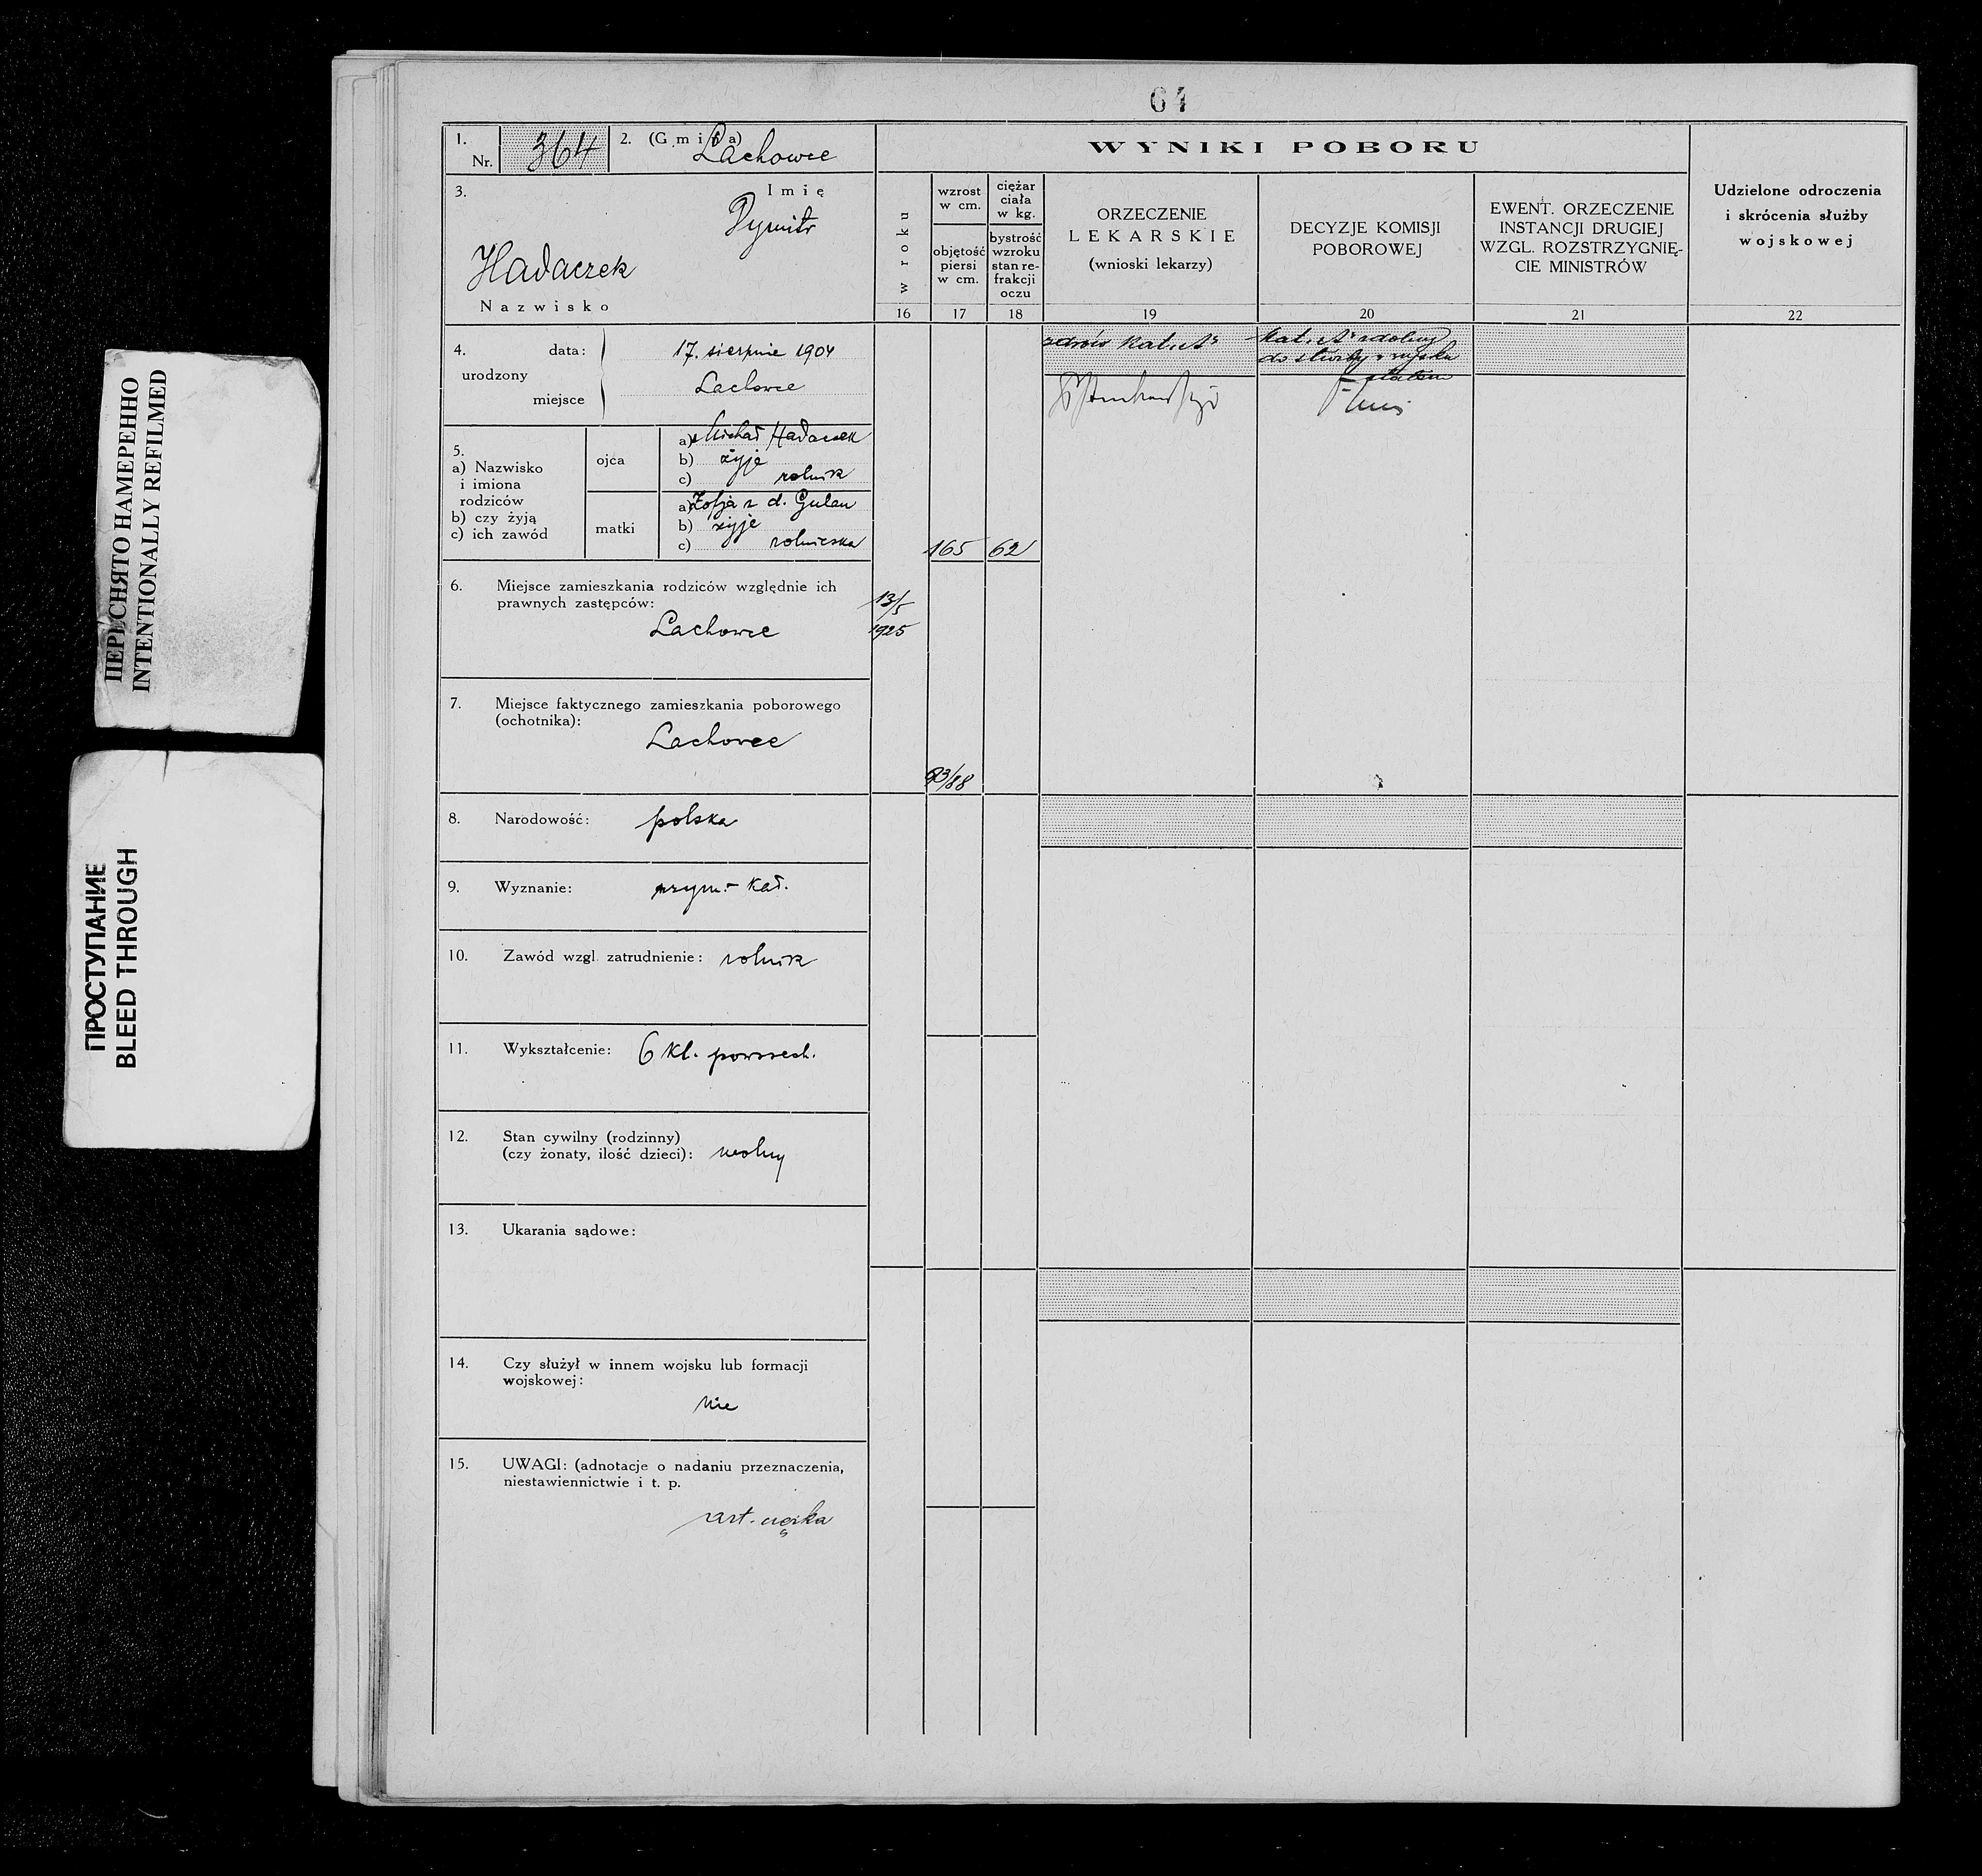 ПЕРЕСНЯТО НАМЕРЕННО
INTENTIONALLY REFILMED
ПРОСТУПАНИЕ
BLEED THROUGH
64
1.
Nr. 364
2. (Gmina)
Lachowce
3.
Imię
Dymitr
Hadaczek
Nazwisko
4.
urodzony
data: 17. sierpnie 1904
miejsce Lachowce
5.
a) Nazwisko
i imiona
rodziców
b) czy żyją
c) ich zawód
ojca
a) Michał Hadaczek
b) żyje
c) rolnik
matki
a) Zofja z d. Gulan
b) żyje
c) rolniczka
6. Miejsce zamieszkania rodziców względnie ich
prawnych zastępców:
Lachowce
7. Miejsce faktycznego zamieszkania poborowego
(ochotnika):
Lachowce
8. Narodowość: polska
9. Wyznanie: rzym.- kat.
10. Zawód wzgl. zatrudnienie: rolnik
11. Wykształcenie: 6 kl. powszech.
12. Stan cywilny (rodzinny)
(czy żonaty, ilość dzieci): wolny
13. Ukarania sądowe:
14. Czy służył w innem wojsku lub formacji
wojskowej:
nie
15. UWAGI: (adnotacje o nadaniu przeznaczenia,
niestawiennictwie i t. p.
art. ciężka
WYNIKI POBORU
w roku
16
13/5
1925
wzrost
w cm.
objętość
piersi
w cm.
17
165
93/88
ciężar
ciała
w kg.
bystrość
wzroku
stan re-
frakcji
oczu
18
62
ORZECZENIE
LEKARSKIE
(wnioski lekarzy)
19
zdrów kat. A
DECYZJE KOMISJI
POBOROWEJ
20
kat. A zdolny
do służby
EWENT. ORZECZENIE
INSTANCJI DRUGIEJ
WZGL. ROZSTRZYGNIĘ-
CIE MINISTRÓW
21
Udzielone odroczenia
i skrócenia służby
wojskowej
22